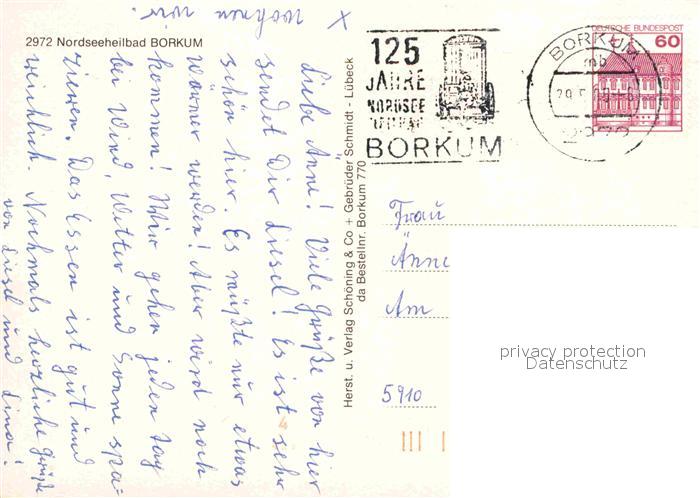 x wohnen wir.
2972 Nordseeheilbad BORKUM
Liebe Änni! Viele Grüße von hier
sendet Dir Liesel! Es ist sehr
schön hier. Es müßte nur etwas
wärmer werden! Aber wird noch
kommen! Wir gehen jeden Tag
bei Wind, Wetter und Sonne spa=
zieren. Das Essen ist gut und
reichlich. Nochmals herzliche Grüße
von Liesel und Lina!
Herst. u. Verlag Schöning & Co + Gebrüder Schmidt - Lübeck
da Bestellnr. Borkum 770
125
JAHRE
NORDSEE
BORKUM
BORKUM
mb
DEUTSCHE BUNDESPOST
60
Frau
Änne
Am
5910
privacy protection
Datenschutz